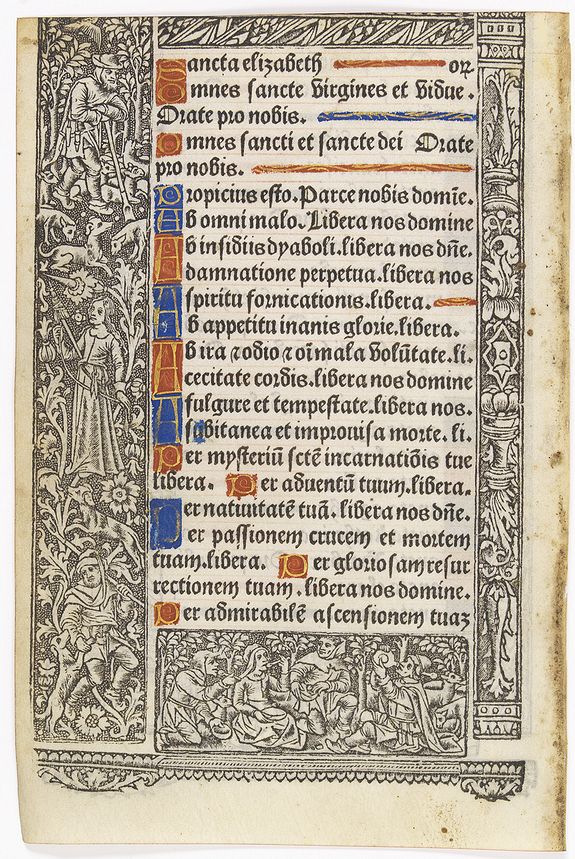 Sancta elizabeth or̄.
Omnes sancte virgines et vidue.
Orate pro nobis.
Omnes sancti et sancte dei Orate
pro nobis.
Propicius esto. Parce nobis domīe.
Ab omni malo. Libera nos domine
Ab insidiis dyaboli. libera nos dn̄e.
A damnatione perpetua. libera nos
A spiritu fornicationis. libera.
Ab appetitu inanis glorie. libera.
Ab ira ⁊ odio ⁊ oī mala volūtate. li.
A cecitate cordis. libera nos domine
A fulgure et tempestate. libera nos.
A subitanea et improuisa morte. li.
Per mysteriū sctē incarnatiōis tue
libera. Per aduentū tuum. libera.
Per natiuitatē tuā. libera nos dn̄e.
Per passionem crucem et mortem
tuam. libera. Per gloriosam resur
rectionem tuam. libera nos domine.
Per admirabilē ascensionem tuaꝫ